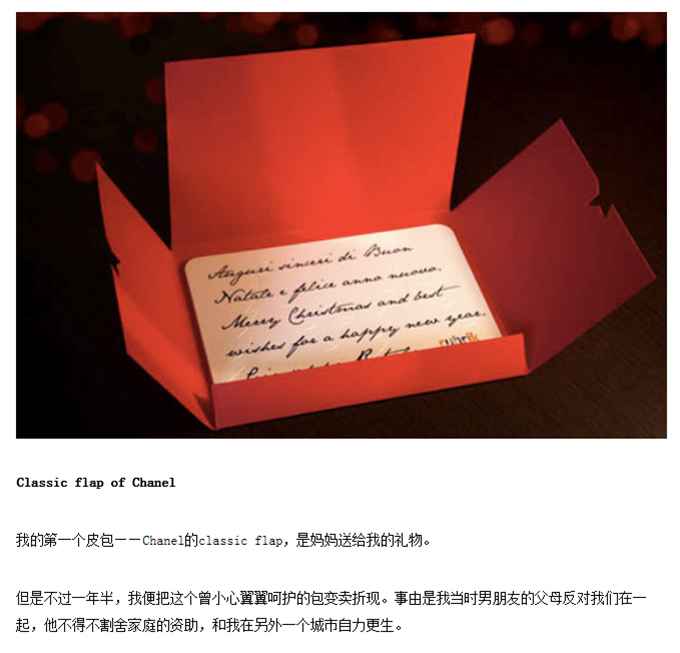 Auguri sinceri di Buon
Natale e felice anno nuovo.
Merry Christmas and best
wishes for a happy new year.
Classic flap of Chanel
我的第一个皮包——Chanel的classic flap，是妈妈送给我的礼物。
但是不过一年半，我便把这个曾小心翼翼呵护的包变卖折现。事由是我当时男朋友的父母反对我们在一
起，他不得不割舍家庭的资助，和我在另外一个城市自力更生。